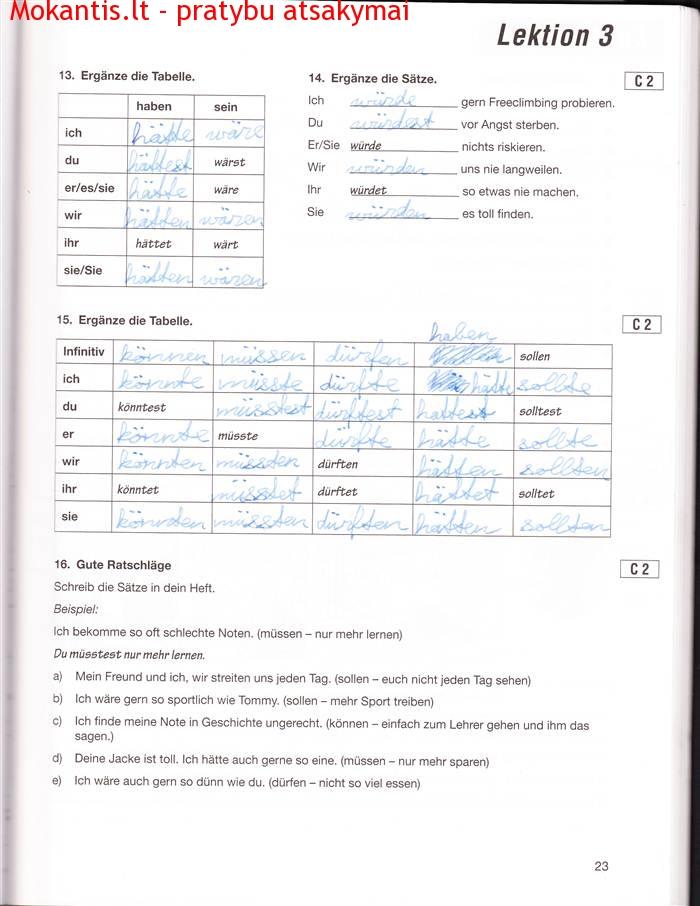 Mokantis.lt - pratybu atsakymai
Lektion 3
13. Ergänze die Tabelle.
haben sein
ich hätte wäre
du hättest wärst
er/es/sie hätte wäre
wir hätten wären
ihr hättet wärt
sie/Sie hätten wären
14. Ergänze die Sätze. C 2
Ich würde gern Freeclimbing probieren.
Du würdest vor Angst sterben.
Er/Sie würde nichts riskieren.
Wir würden uns nie langweilen.
Ihr würdet so etwas nie machen.
Sie würden es toll finden.
15. Ergänze die Tabelle. C 2
haben
Infinitiv können müssen dürfen sollen
ich könnte müsste dürfte hätte sollte
du könntest müsstest dürftest hattest solltest
er könnte müsste dürfte hätte sollte
wir könnten müssten dürften hätten sollten
ihr könntet müsstet dürftet hättet solltet
sie könnten müssten dürften hätten sollten
16. Gute Ratschläge C 2
Schreib die Sätze in dein Heft.
Beispiel:
Ich bekomme so oft schlechte Noten. (müssen – nur mehr lernen)
Du müsstest nur mehr lernen.
a) Mein Freund und ich, wir streiten uns jeden Tag. (sollen – euch nicht jeden Tag sehen)
b) Ich wäre gern so sportlich wie Tommy. (sollen – mehr Sport treiben)
c) Ich finde meine Note in Geschichte ungerecht. (können – einfach zum Lehrer gehen und ihm das
sagen.)
d) Deine Jacke ist toll. Ich hätte auch gerne so eine. (müssen – nur mehr sparen)
e) Ich wäre auch gern so dünn wie du. (dürfen – nicht so viel essen)
23